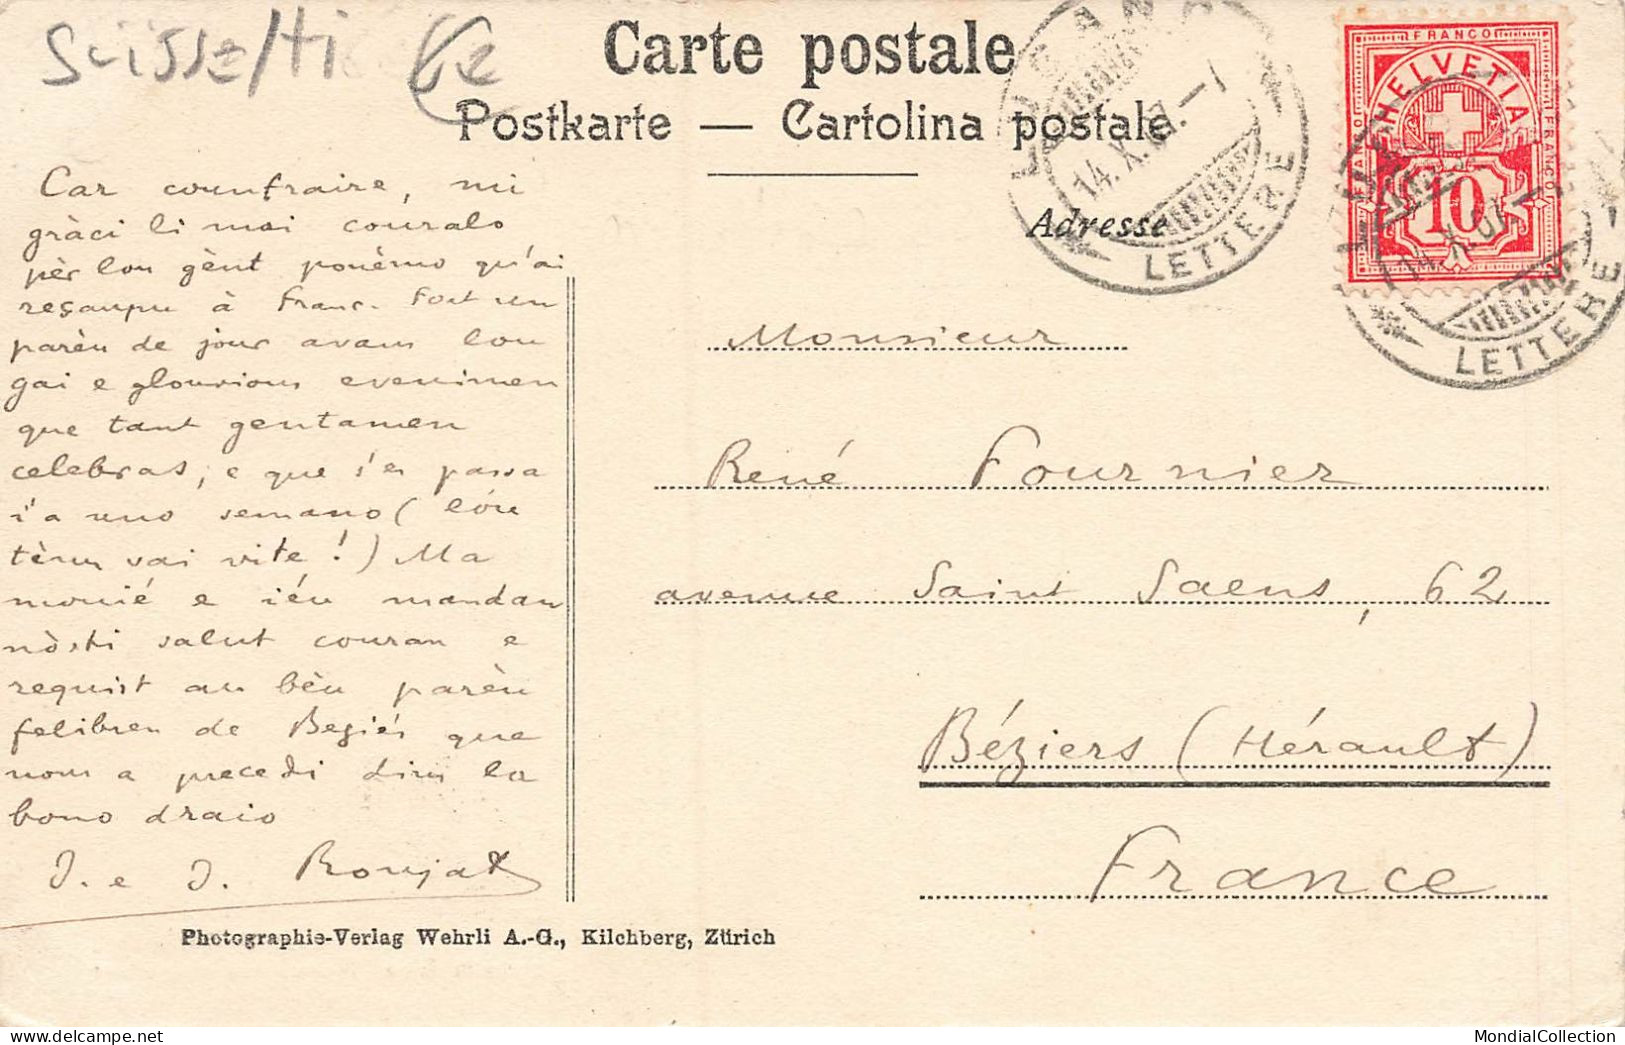 Suisse/Ti
Carte postale
Postkarte — Cartolina postale
LUGANO
14.X.07.—1
LETTERE
FRANCO
HELVETIA
FRANCO
FRANCO
10
LETTERE
Adresse
Car counfraire, mi
gràci li mai couralo
pèr lou gènt pouèmo qu'ai
reçaupu à Franc. Fort un
parèu de jour avans lou
gai e glourious evenimen
que tant gentamen
celebras, e que s'es passa
i'a uno semano (lóu
tèms vai vite!) Ma
mouié e iéu mandan
nòsti salut couran e
requist au bèu parèu
felibren de Begiés que
nous a precedi dins la
bono draio
J. e J. Roujat
Monsieur
René Fournier
avenue Saint Saens, 62
Béziers (Hérault)
France
Photographie-Verlag Wehrli A.-G., Kilchberg, Zürich
www.delcampe.net
MondialCollection